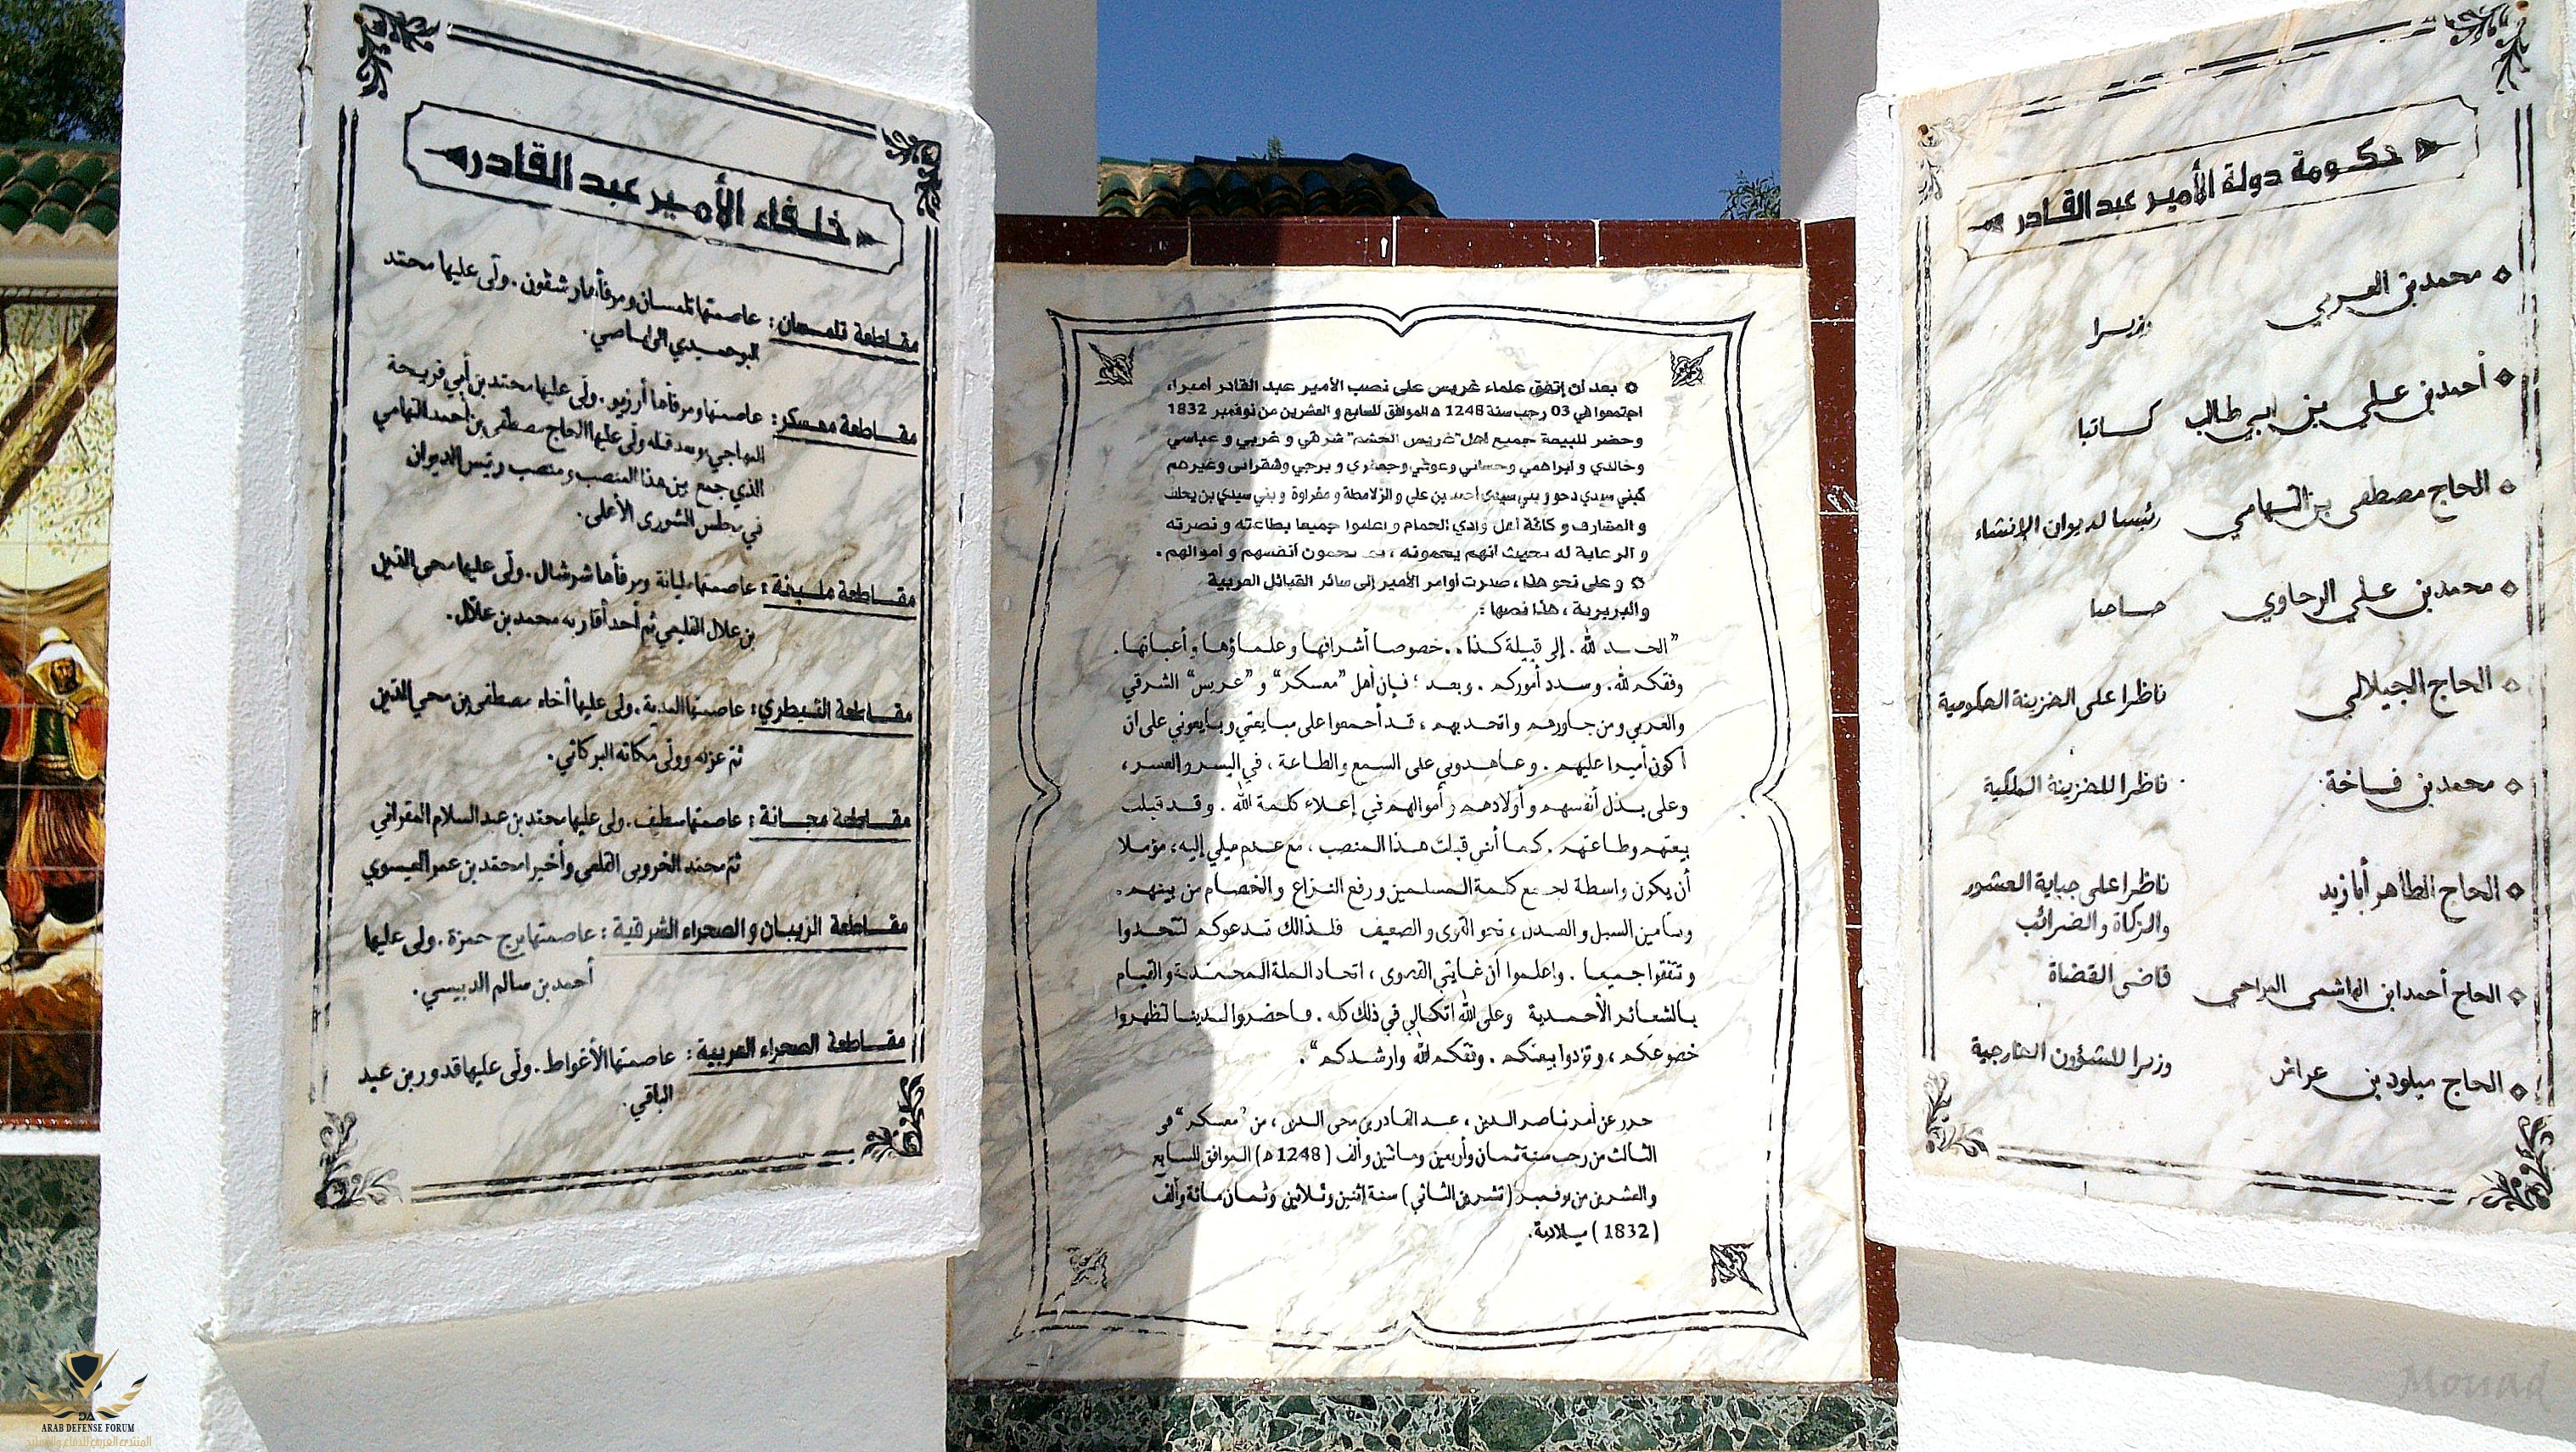 حكومة دولة الأمير عبد القادر
محمد بن العربي وزيرا
أحمد بن علي بن ابي طالب كاتبا
الحاج مصطفى بن التهامي رئيسا لديوان الإنشاء
محمد بن علي الرحاوي حاجبا
الحاج الجيلالي ناظرا على الخزينة الحكومية
محمد بن فاخة ناظرا للخزينة الملكية
الحاج الطاهر أبا زيد ناظرا على جباية العشور
والزكاة والضرائب
الحاج أحمد ابن الهاشمي المراحي قاضي القضاة
الحاج ميلود بن عراش وزيرا للشؤون الخارجية
بعد أن إتفق علماء غريس على نصب الأمير عبد القادر أميرا،
اجتمعوا في 03 رجب سنة 1248 هـ الموافق للسابع و العشرين من نوفمبر 1832
وحضر للبيعة جميع أهل "غريس الحشم" شرقي و غربي و عباسي
وخالدي و ابراهمي وحساني وعوفي وجعفري و برجي وشقراني وغيرهم
كبني سيدي دحو و بني سيدي أحمد بن علي و الزلامطة و مغراوة و بني سيدي بن يخلف
و المشارف و كافة أهل وادي الحمام و اعلموا جميعا بطاعته و نصرته
و الرعاية له بحيث أنهم يحمونه ، بما يحمون أنفسهم و أموالهم .
و على نحو هذا ، صدرت أوامر الأمير إلى سائر القبائل العربية
والبربرية ، هذا نصها :
"الحمد لله . إلى قبيلة كذا . . خصوصا أشرافها و علماؤها و أعيانها .
وفقكم الله . وسدد أموركم . وبعد ؛ فإن أهل "معسكر" و "غريس" الشرقي
والغربي ومن جاورهم واتحد بهم ، قد أجمعوا على مبايعتي وبايعوني على أن
أكون أميرا عليهم . وعاهدوني على السمع والطاعة ، في اليسر والعسر ،
وعلى بذل أنفسهم وأولادهم وأموالهم في إعلاء كلمة الله . وقد قبلت
بيعتهم وطاعتهم . كما أنني قبلت هذا المنصب ، مع عدم ميلي إليه ، مؤملا
أن يكون واسطة لجمع كلمة المسلمين ورفع النزاع والخصام من بينهم .
وتأمين السبل و الصدل ، نحو القوي و الضعيف فلذالك تدعوكم لتتحدوا
وتتفقوا جميعا . واعلموا أن غايتي القصوى ، اتحاد الملة المحمدية والقيام
بالشعائر الأحمدية وعلى الله اتكالي في ذلك كله . فاحضروا لدينا لتظهروا
خضوعكم ، وتؤدوا بيعتكم . وفقكم الله وارشدكم" .
حرر عن أمر ناصر الدين ، عبد القادر بن محي الدين ، من "معسكر" في
الثالث من رجب سنة ثمان وأربعين ومائتين وألف ( 1248 هـ) الموافق للسابع
والعشرين من نوفمبر (تشرين الثاني) سنة إثنين وثلاثين وثمان مائة وألف
(1832) ميلادية.
خلفاء الأمير عبد القادر
مقاطعة تلمسان : عاصمتها تلمسان ومرفأها رشقون . ولى عليها محمد
البوحميدي الولهاصي .
مقاطعة معسكر : عاصمتها ومرفأها أرزيو . ولى عليها محمد بن أبي فريحة
المهاجي وبعد قتله ولى عليها الحاج مصطفى بن أحمد التهامي
الذي جمع بين هذا المنصب ومنصب رئيس الديوان
في مجلس الشورى الأعلى .
مقاطعة مليانة : عاصمتها مليانة ومرفأها شرشال . ولى عليها محي الدين
بن علال القليعي ثم أحد أقاربه محمد بن علال .
مقاطعة التيطري : عاصمتها المدية . ولى عليها أخاه مصطفى بن محي الدين
ثم عزله وولى مكانه البركاني .
مقاطعة مجانة : عاصمتها سطيف . ولى عليها محمد بن عبد السلام المقراني
ثم محمد الخروبي القلعي وأخيرا محمد بن عمر العيسوي
مقاطعة الزيبان و الصحراء الشرقية : عاصمتها برج حمزة . ولى عليها
أحمد بن سالم الدبيسي .
مقاطعة الصحراء الغربية : عاصمتها الأغواط . ولى عليها قدور بن عبد
الباقي .
Mouad
DA
ARAB DEFENSE FORUM
المنتدى العربي للدفاع والتسليح